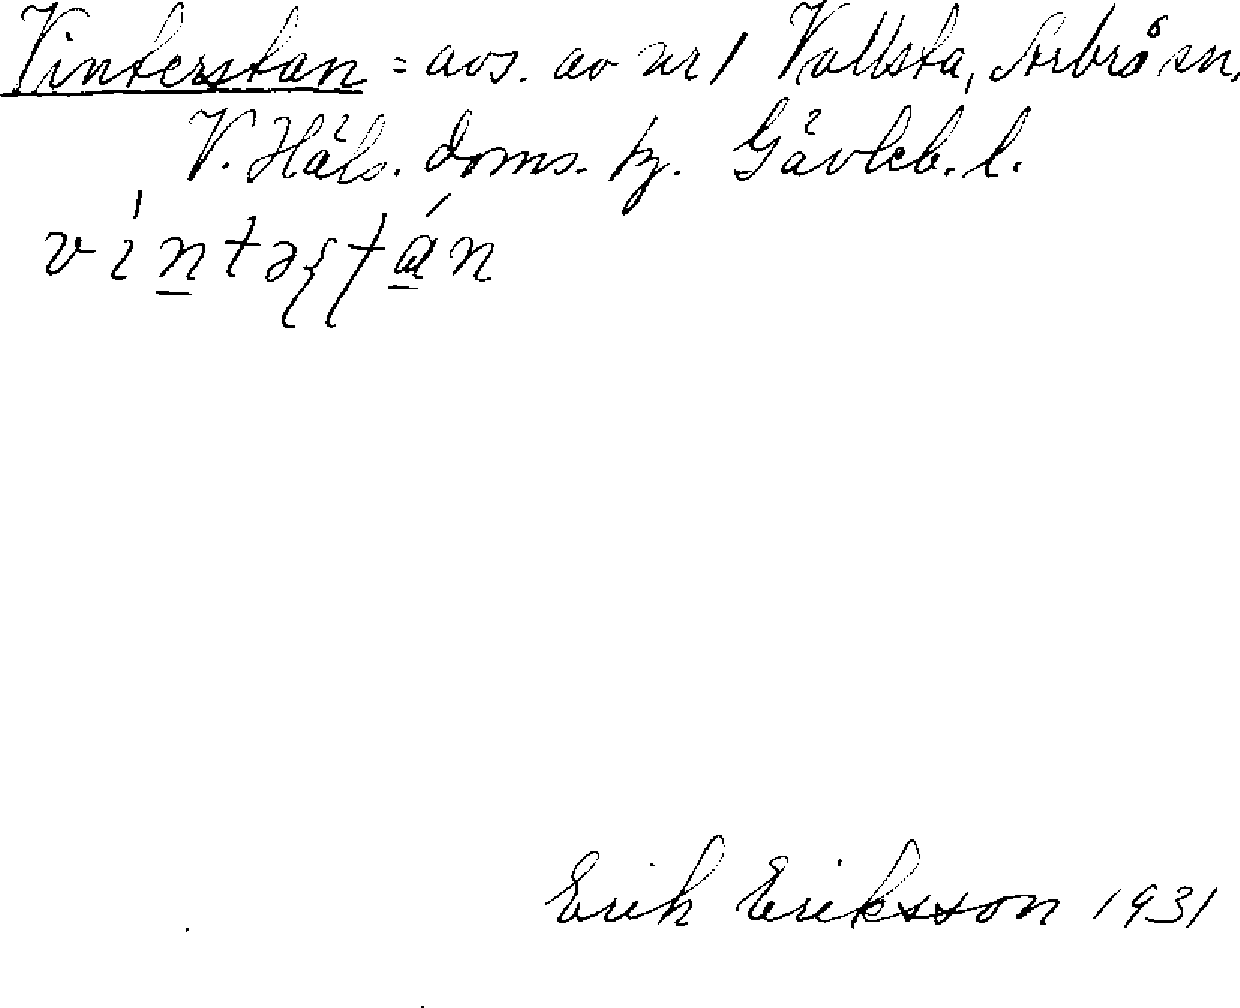 Vinterstan = avs. av nr 1 Vallsta, Arbrå sn.
V. Häls. doms. hz. Gävleb. l.
Erik Eriksson 1931